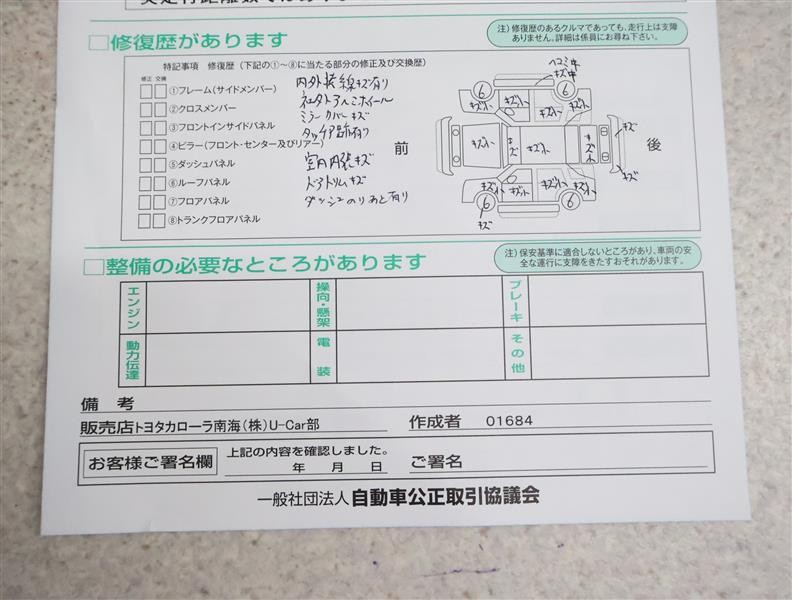 □修復歴があります
注）修復歴のあるクルマであっても、走行上は支障
ありません。詳細は係員にお尋ね下さい。
特記事項　修復歴（下記の①～⑧に当たる部分の修正及び交換歴）
修正 交換
①フレーム（サイドメンバー）
②クロスメンバー
③フロントインサイドパネル
④ピラー（フロント・センター及びリアー）
⑤ダッシュパネル
⑥ルーフパネル
⑦フロアパネル
⑧トランクフロアパネル
内外装線キズ有り
ミラーカバーキズ
タッチア跡有り
室内内装キズ
ドアトリムキズ
ダッシュのりあと有り
前
後
ヘコミ キ
キズ キ
6
6
キズ小
キズ小
キズ小
キズ小
キズ
キズ小
キズ小
キズ
キズ
キズ小
キズ小
キズ小
キズ小
6
6
キズ
□整備の必要なところがあります
注）保安基準に適合しないところがあり、車両の安
全な運行に支障をきたすおそれがあります。
エンジン
操向・懸架
ブレーキ
動力伝達
電装
その他
備考
販売店 トヨタカローラ南海（株）U-Car部
作成者 01684
お客様ご署名欄
上記の内容を確認しました。
年 月 日
ご署名
一般社団法人 自動車公正取引協議会